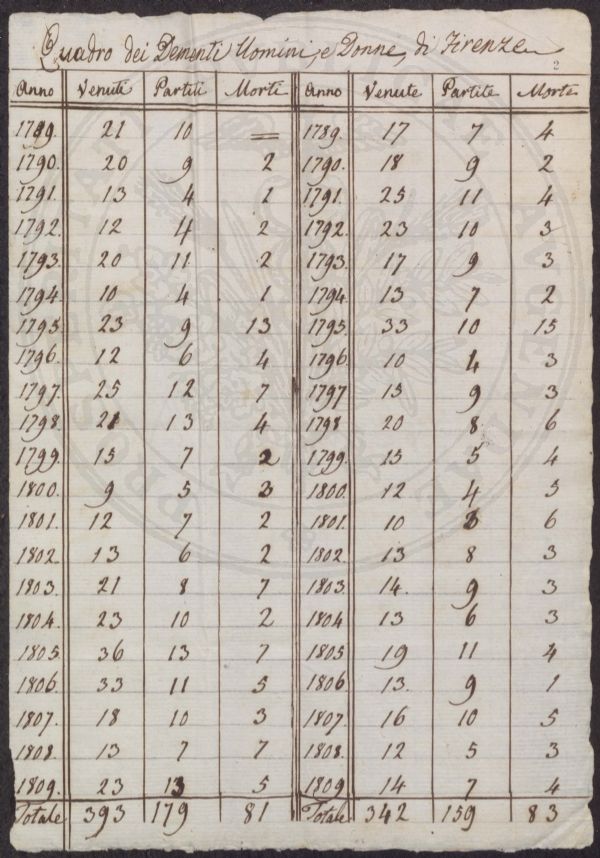 Quadro dei Dementi Uomini, e Donne, di Firenze
2
Anno Venute Partiti Morte Anno Venute Partite Morte
1789. 21 10 = 1789. 17 7 4
1790. 20 9 2 1790. 18 9 2
1791. 13 4 1 1791. 25 11 4
1792. 12 4 2 1792. 23 10 3
1793. 20 11 2 1793. 17 9 3
1794. 10 4 1 1794. 13 7 2
1795. 23 9 13 1795. 33 10 15
1796. 12 6 4 1796. 10 4 3
1797. 25 12 7 1797 15 9 3
1798. 21 13 4 1798 20 8 6
1799. 15 7 2 1799. 15 5 4
1800. 9 5 3 1800. 12 4 3
1801. 12 7 2 1801. 10 3 6
1802. 13 6 2 1802. 13 8 3
1803. 21 8 7 1803. 14. 9 3
1804. 23 10 2 1804 13 6 3
1805. 36 13 7 1805 19 11 4
1806. 33 11 5 1806 13. 9 1
1807. 18 10 3 1807 16 10 5
1808. 13 7 7 1808. 12 5 3
1809. 23 13 5 1809 14 7 4
Totale 393 179 81 Totale 342 159 83